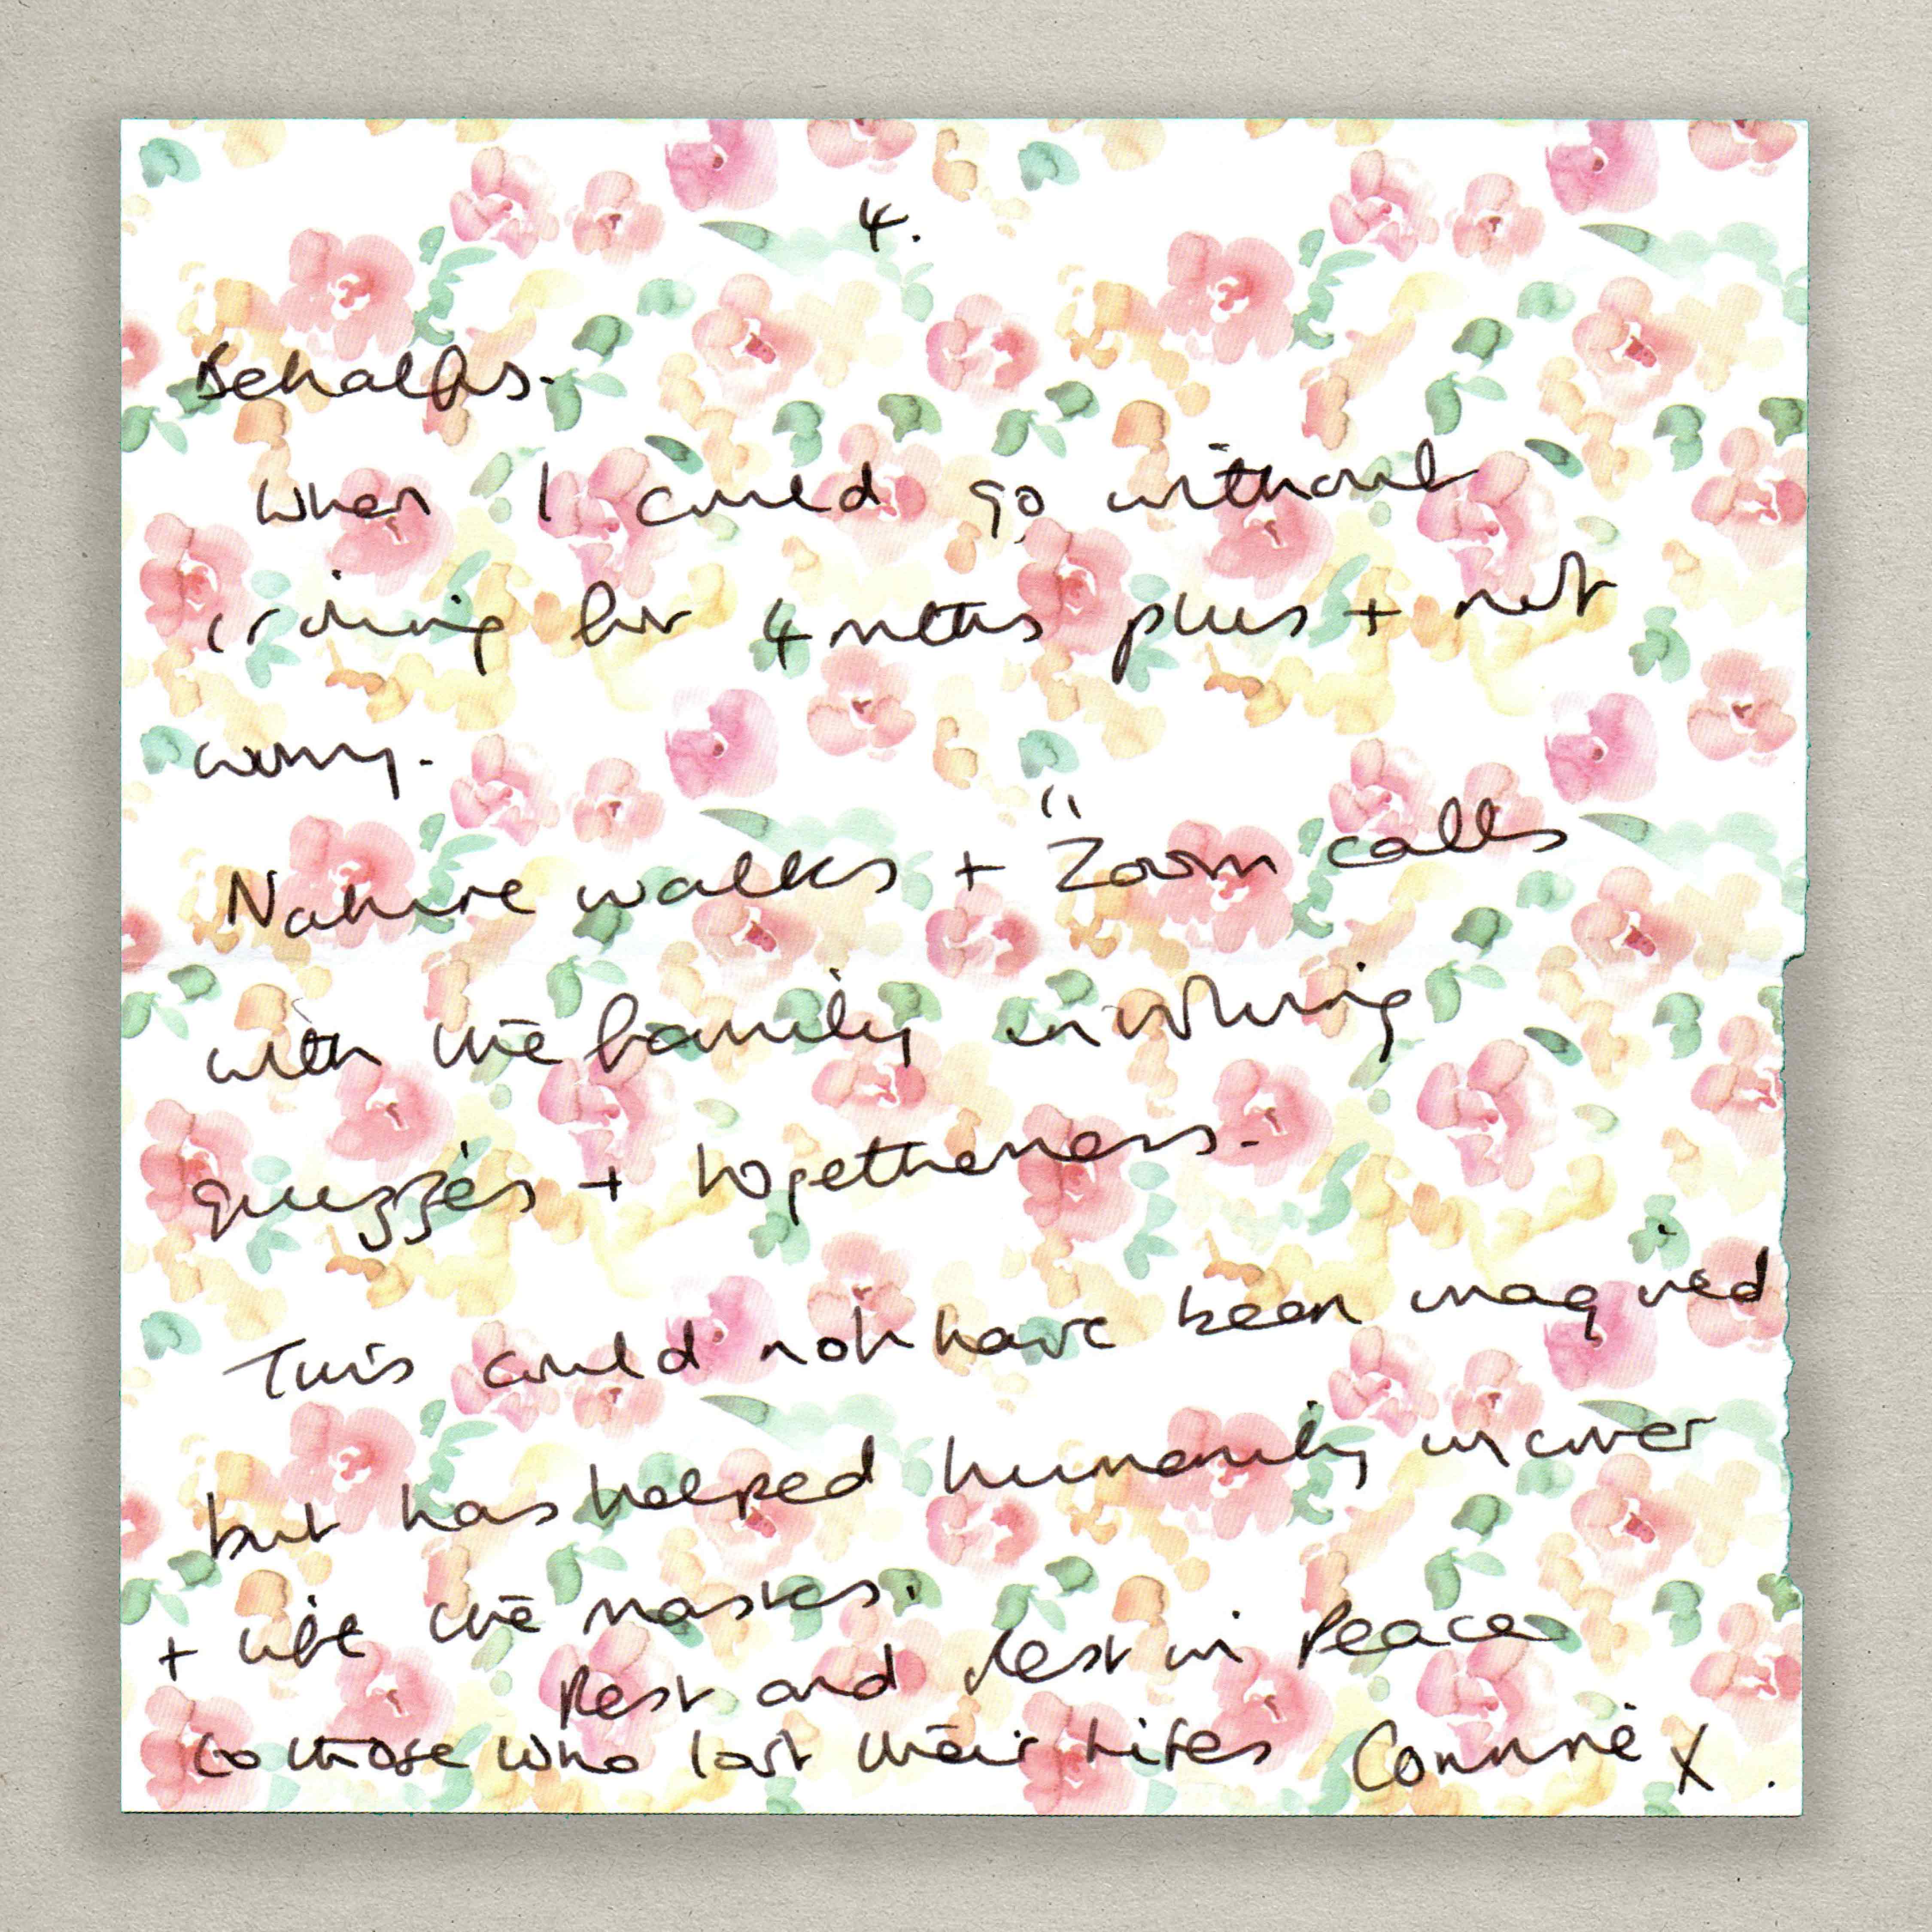 4.
Behalfs.
When I could go without
ironing for 4 mths plus + not
worry.
Nature walks + "Zoom calls
with the family involving
quizzes + togetherness.
This could not have been imagined
but has helped humanity uncover
+ lift the masks.
Rest and Rest in Peace
to those who lost their lifes Connie X.